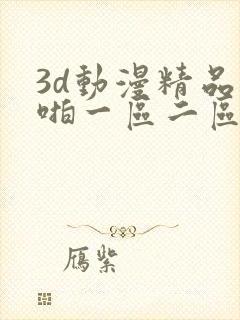 3d動漫精品
啪一區二區
鴈紫